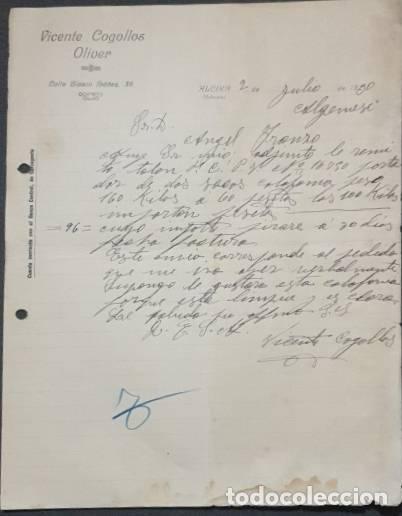 Vicente Cogollos
Oliver
Calle Blasco Ibáñez, 36
ALCIRA 2 de Julio de 1930
(Valencia)
Algemesi
Sr. D.
Angel Franzo
Muy Sr. mio; adjunto le remi
to talon F. C. P. V. nº 10750 porta
dor de dos sacos colofonia peso
160 Kilos a 60 pesetas los 100 Kilos
importan pesetas
= 96 = cuyo importe girare a 30 dias
fecha factura
Este envio, corresponde al pedido
que me hizo ayer verbalmente
supongo le gustara esta colofonia
porque esta limpia y es clara.
Le saluda su affmo S. S.
Q. E. S. M.
Vicente Cogollos
Cuenta corriente con el Banco Central, de
todocoleccion